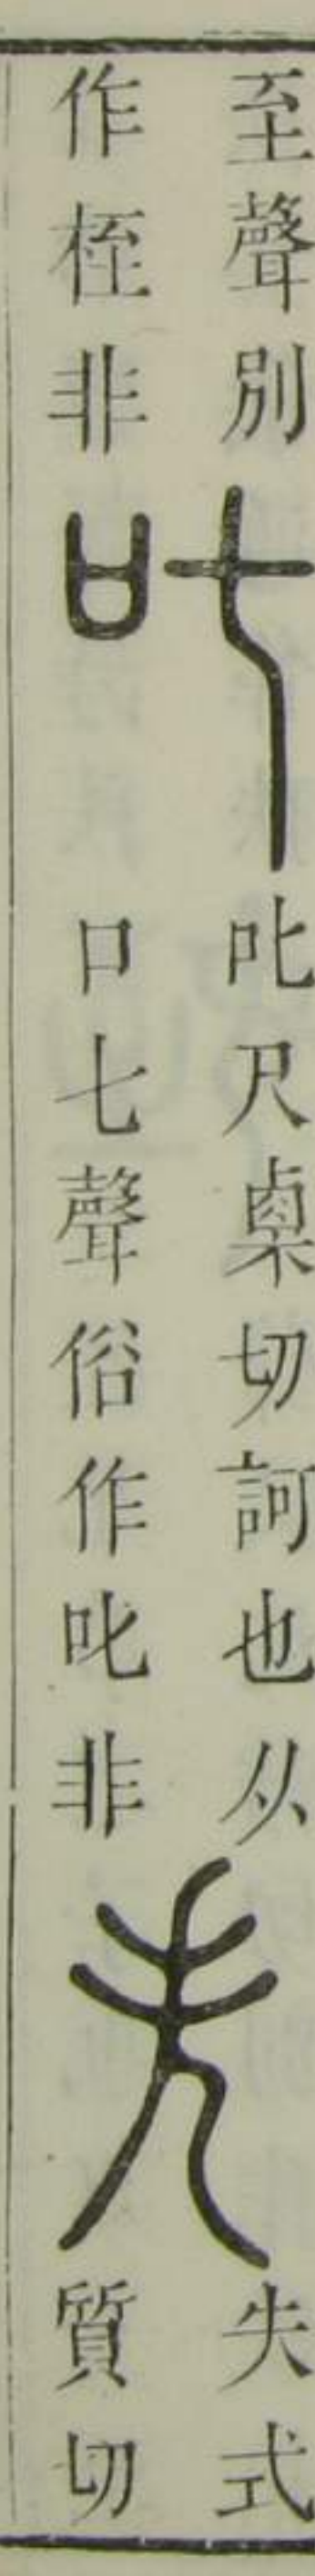 至聲別
作桎非
𠮟
𠮟尺㮚切訶也从
口七聲俗作叱非
失
失式
質切